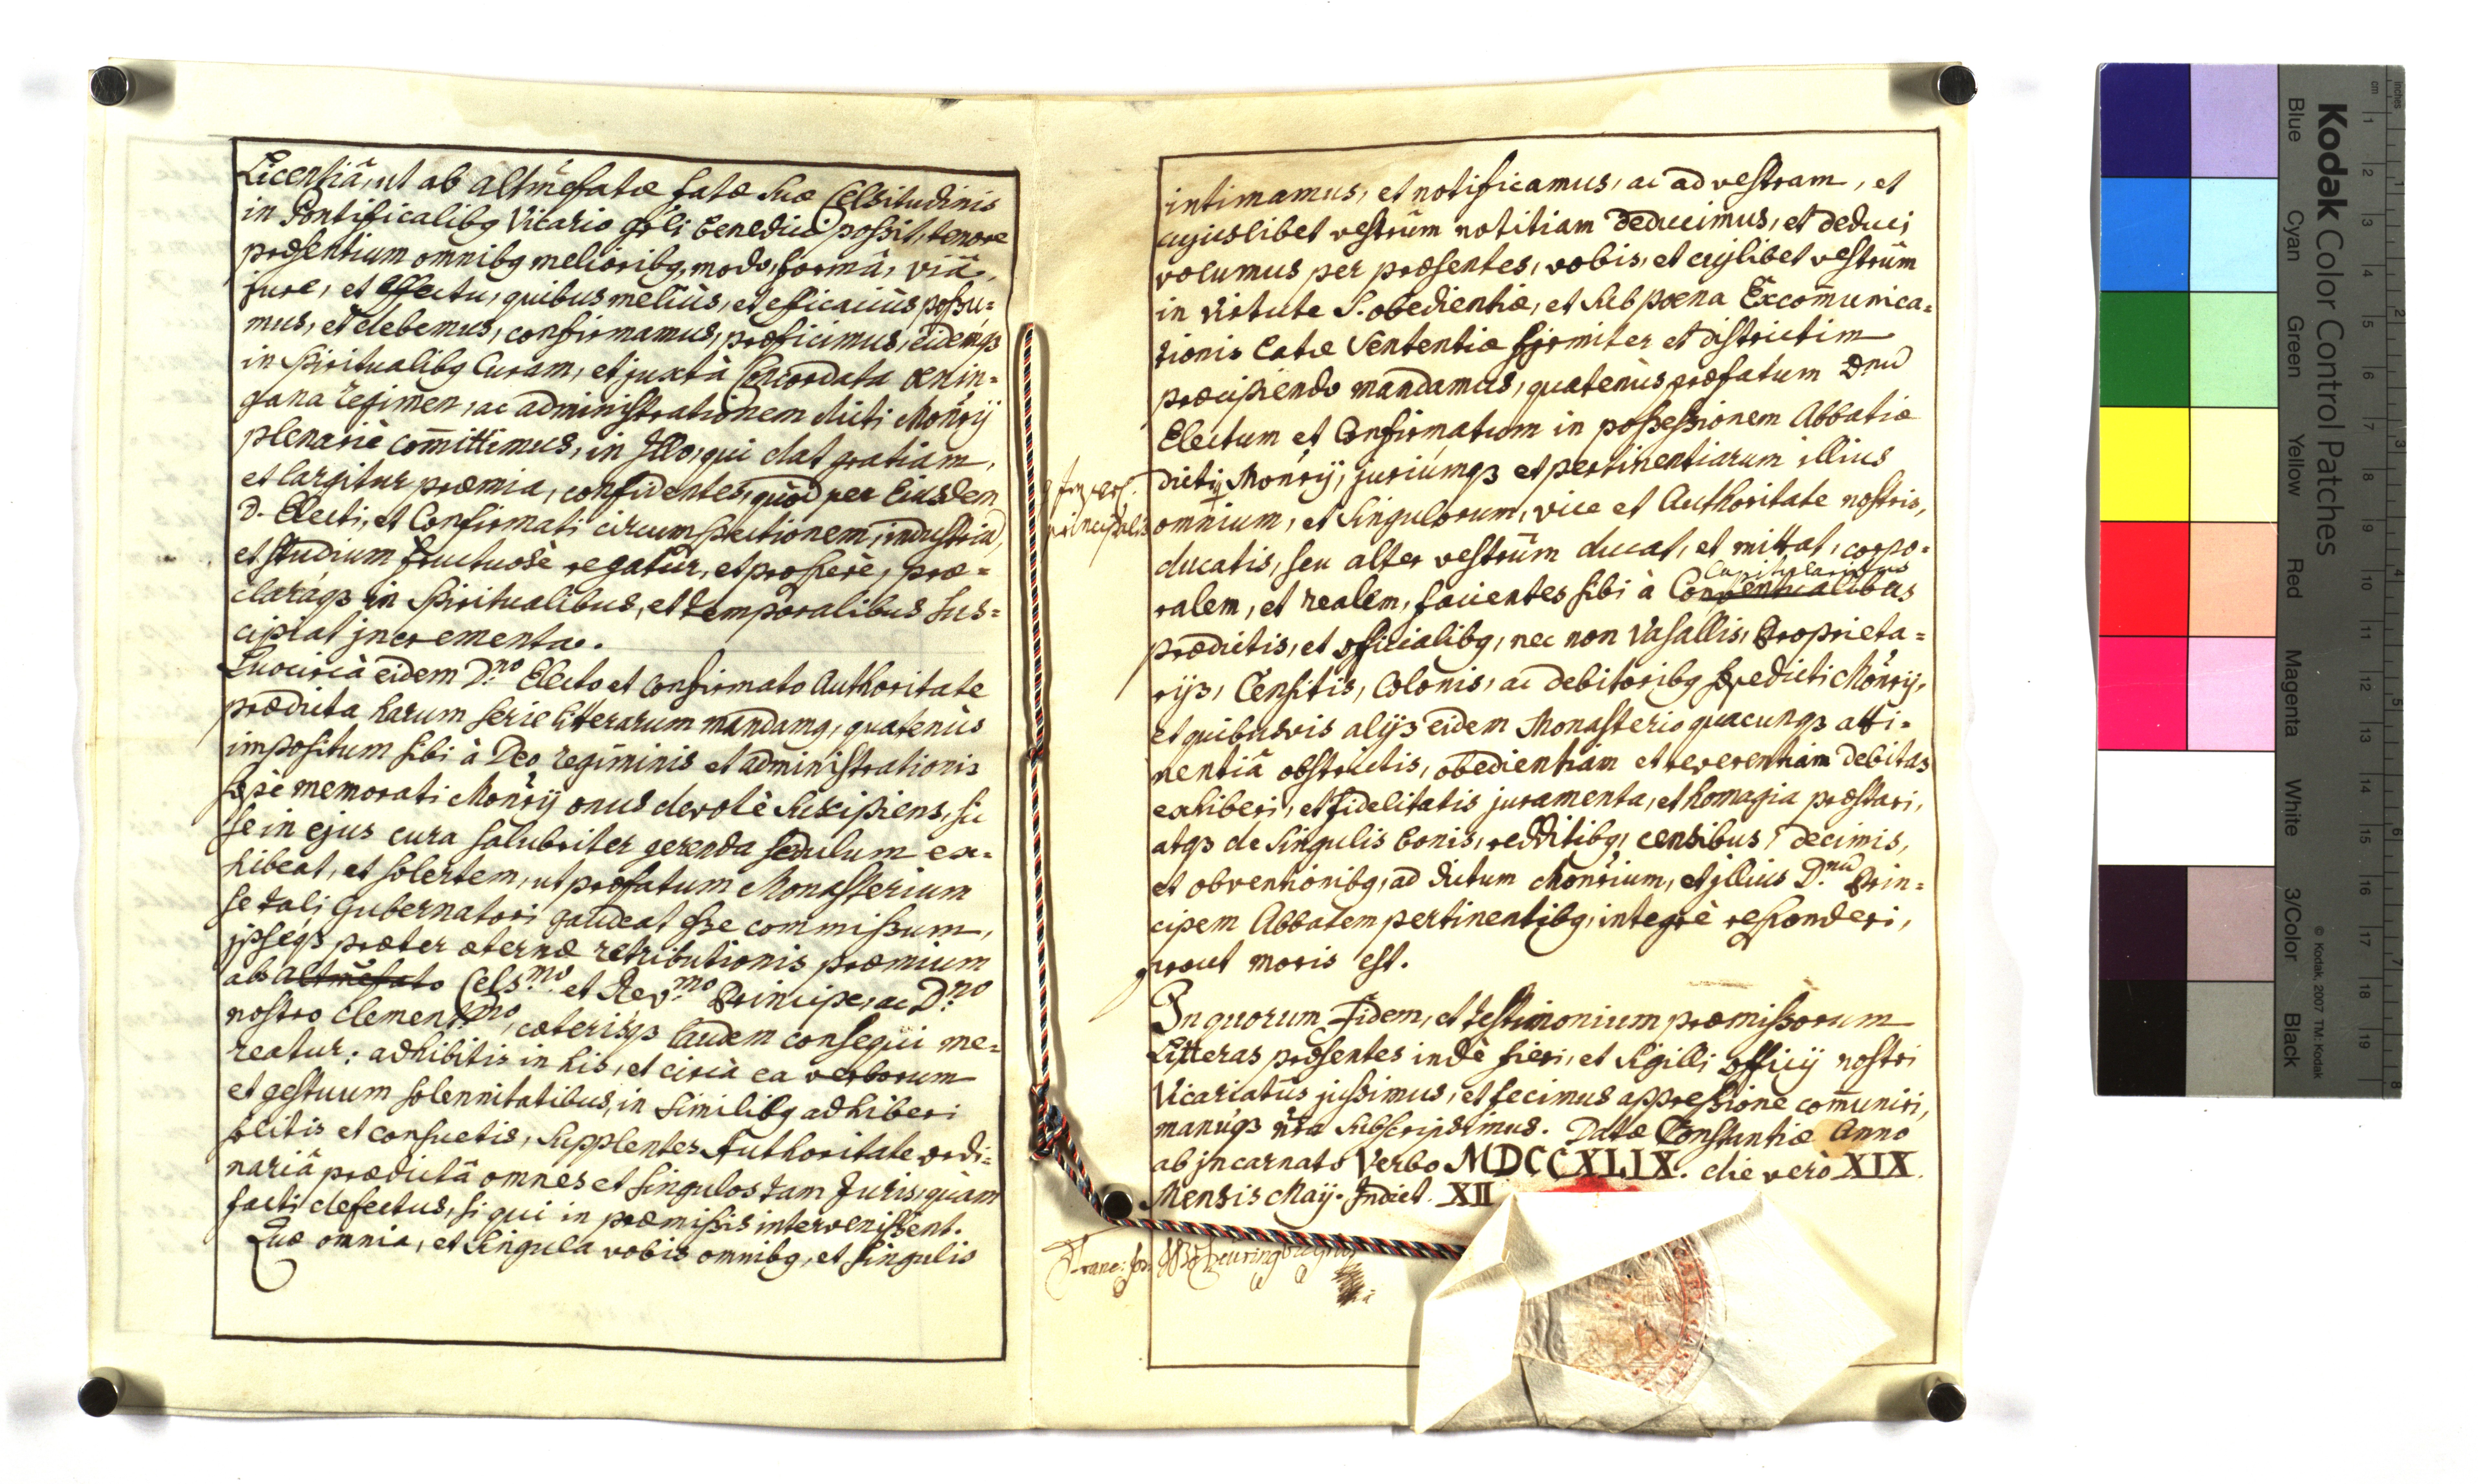 Licentiâ, ut ab altmẽfatæ fatæ suæ Celsitudinis
in Pontificalibq Vicario gñli benedici possit, tenore
præsentium omnibq melioribq, modo, formâ, viâ,
jure, et effectu, quibus meliùs, et efficaciùs possu=
mus, et debemus, confirmamus, præficimus, eidemqз
in Spiritualibq Curam, et juxtà Concordata Oenin=
gana regimen, ac administrationem dicti Monrỹ
plenariè com̃ittimus, in Illo, qui dat gratiam,
et largitur præmia, confidentes, quòd per Eiusdem
D. Electi, et Confirmati circumspectionem, industriã,
et studium fructuosè regatur, et prosperè, præ=
claráqз in Spiritualibus, et temporalibus sus=
cipiat jncrementa.
Quocircà eidem D.no Electo et Confirmato Authoritate
prædicta harum serie litterarum mandamq, quatenùs
impositum sibi à Deo regiminis et administrationis
sæpè memorati Monrỹ onus devotè suscipiens, sic
se in ejus cura salubriter gerenda sedulum ex=
hibeat, et solertem, ut præfatum Monasterium
se tali Gubernatori gaudeat esse commissum,
jpséqз præter æternæ retributionis præmium
ab altmẽfato Cels.mo et Rev.mo Principe, ac D.no
nostro Clementmo, cæterisqз laudem consequi me=
reatur: adhibitis in his, et circà ea verborum
et gestuum solennitatibus, in similibq adhiberi
solitis et consuetis, supplentes Authoritate ordi=
nariâ prædictâ omnes et singulos tam Juris, quàm
facti defectus, si qui in præmissis intervenissent.
Quæ omnia, et singula vobis omnibq, et singulis
intimamus, et notificamus, ac ad vestram, et
cujuslibet vestrûm notitiam deducimus, et deduci
volumus per præsentes, vobis, et cujlibet vestrûm
in virtute S. obedientiæ, et sub pœna Excom̃unica=
tionis latæ sententiæ firmiter et districtim
præcipiendo mandamus, quatenùs præfatum Dnũ
Electum et Confirmatum in possessionem Abbatiæ
dicti Monrỹ, juriúmqз et pertinentiarum illius
omnium, et singulorum, vice et Authoritate nostris,
ducatis, seu alter vestrûm ducat, et mittat, corpo=
Capitularibus
ralem, et realem, facientes sibi à Conventualibus
prædictis, et officialibq, nec non Vasallis, Proprieta=
rijs, Censitis, Colonis, ac debitoribq prædicti Monrỹ,
et quibusvis alijs eidem Monasterio quacunqз atti=
nentiâ obstrictis, obedientiam et reverentiam debitas
exhiberi, et fidelitatis juramenta, et homagia præstari,
atqз de singulis bonis, redditibq, censibus, decimis,
et obventionibq, ad dictum Monrium, et jllius D.nũ Prin=
cipem Abbatem pertinentibq, integrè responderi,
prout moris est.
In quorum Fidem, et testimonium præmissorum
Litteras præsentes indè fieri, et Sigilli officij nostri
Vicariatûs jussimus, et fecimus appressione com̃uniri,
manúqз nr̃a subscripsimus. Datæ Constantiæ Anno
ab jncarnato Verbo MDCCXLIX. die verò XIX
Mensis Maij. Indict. XII
Kodak Color Control Patches
© Kodak, 2007 TM: Kodak
Blue
Cyan
Green
Yellow
Red
Magenta
White
3/Color
Black
cm
1
2
3
4
5
6
7
8
9
10
11
12
13
14
15
16
17
18
19
inches
1
2
3
4
5
6
7
8